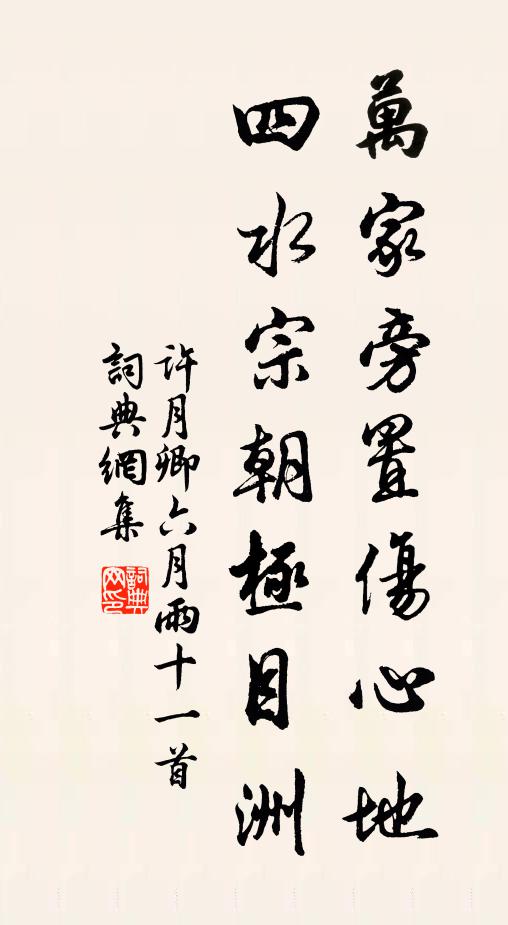 萬家旁置傷心地
四水宗朝極目洲
许月卿六月雨十一首
詞典網集
詞典网印